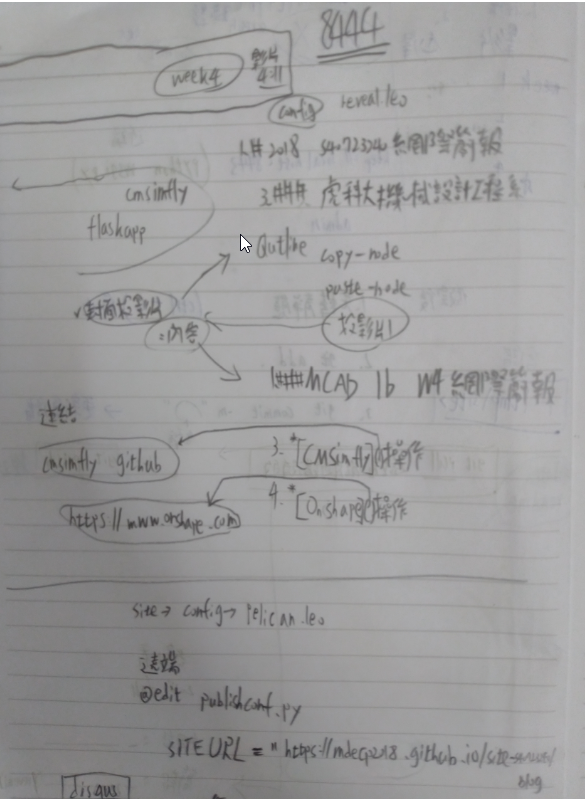 8444
week4 影片 4:11
config reveal.leo
1.# 2018 s40723240 網際簡報
cmsimfly
2.### 虎科大機械設計工程系
flaskapp
Outline copy-node
paste-node
1.封面投影片
2.內容
投影片1
1### MCAD 1b W4 網際簡報
連結
cmsimfly github
3. *[Cmsimfly]()操作
4. *[Onshape]()操作
https://www.onshape.com
site → config → Pelican.leo
遠端
@edit publishconf.py
SITEURL = "https://mdecp2018.github.io/site-
blog
disqus